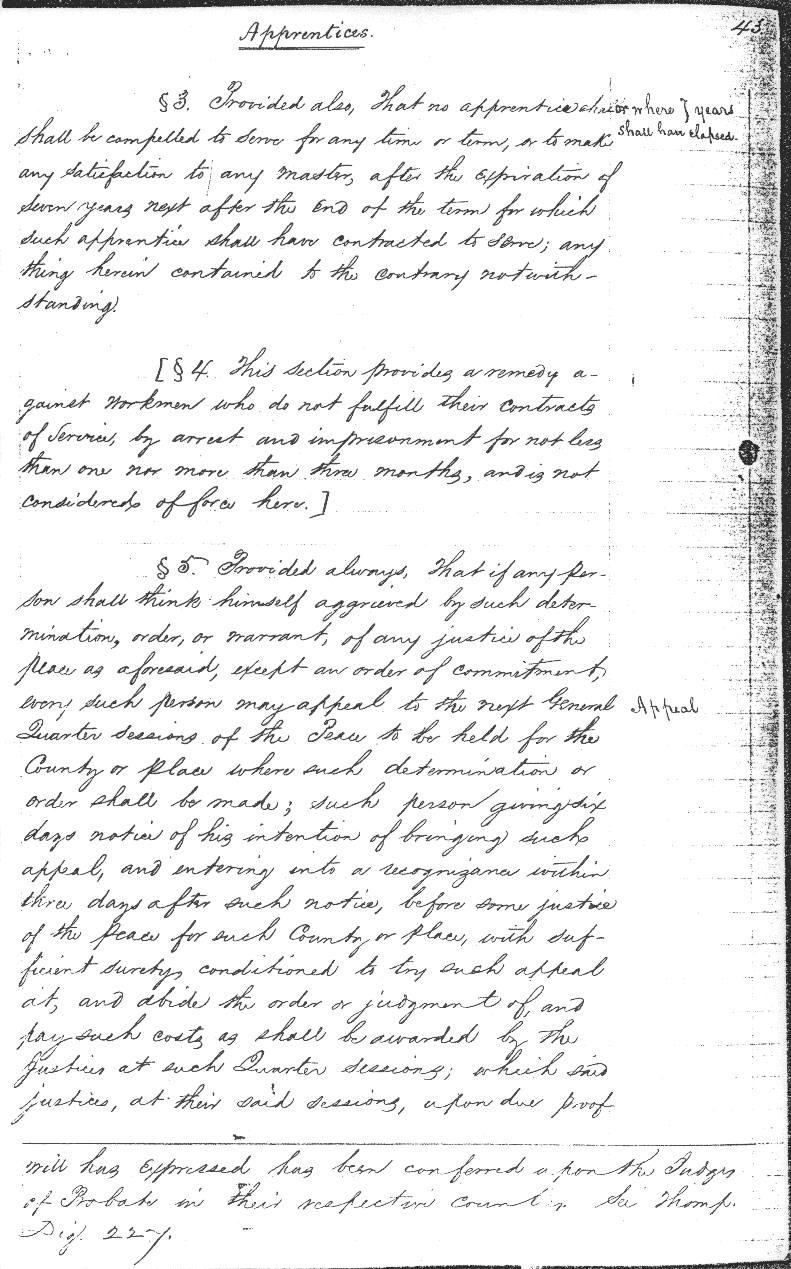 Apprentices.
43.
§3. Provided also, That no apprentice
or where 7 years
shall have elapsed.
shall be compelled to serve for any time or term, or to make
any satisfaction to any master, after the expiration of
seven years next after the end of the term for which
such apprentice shall have contracted to serve; any
thing herein contained to the contrary notwith-
standing.
[§4. This section provides a remedy a-
gainst workmen who do not fulfill their contracts
of service, by arrest and imprisonment for not less
than one nor more than three months, and is not
considered of force here.]
§5. Provided always, That if any per-
son shall think himself aggrieved by such deter-
mination, order, or warrant, of any justice of the
peace as aforesaid, except an order of commitment,
every such person may appeal to the next General
Appeal
Quarter Sessions of the Peace to be held for the
County or place where such determination or
order shall be made; such person giving six
days notice of his intention of bringing such
appeal, and entering into a recognizance within
three days after such notice, before some justice
of the peace for such County or place, with suf-
ficient surety, conditioned to try such appeal
at, and abide the order or judgment of, and
pay such costs as shall be awarded by the
Justices at such Quarter Sessions; which said
justices, at their said sessions, upon due proof
will has expressed has been conferred upon the Judges
of Probate in their respective counties. See Thomp.
Dig. 227.